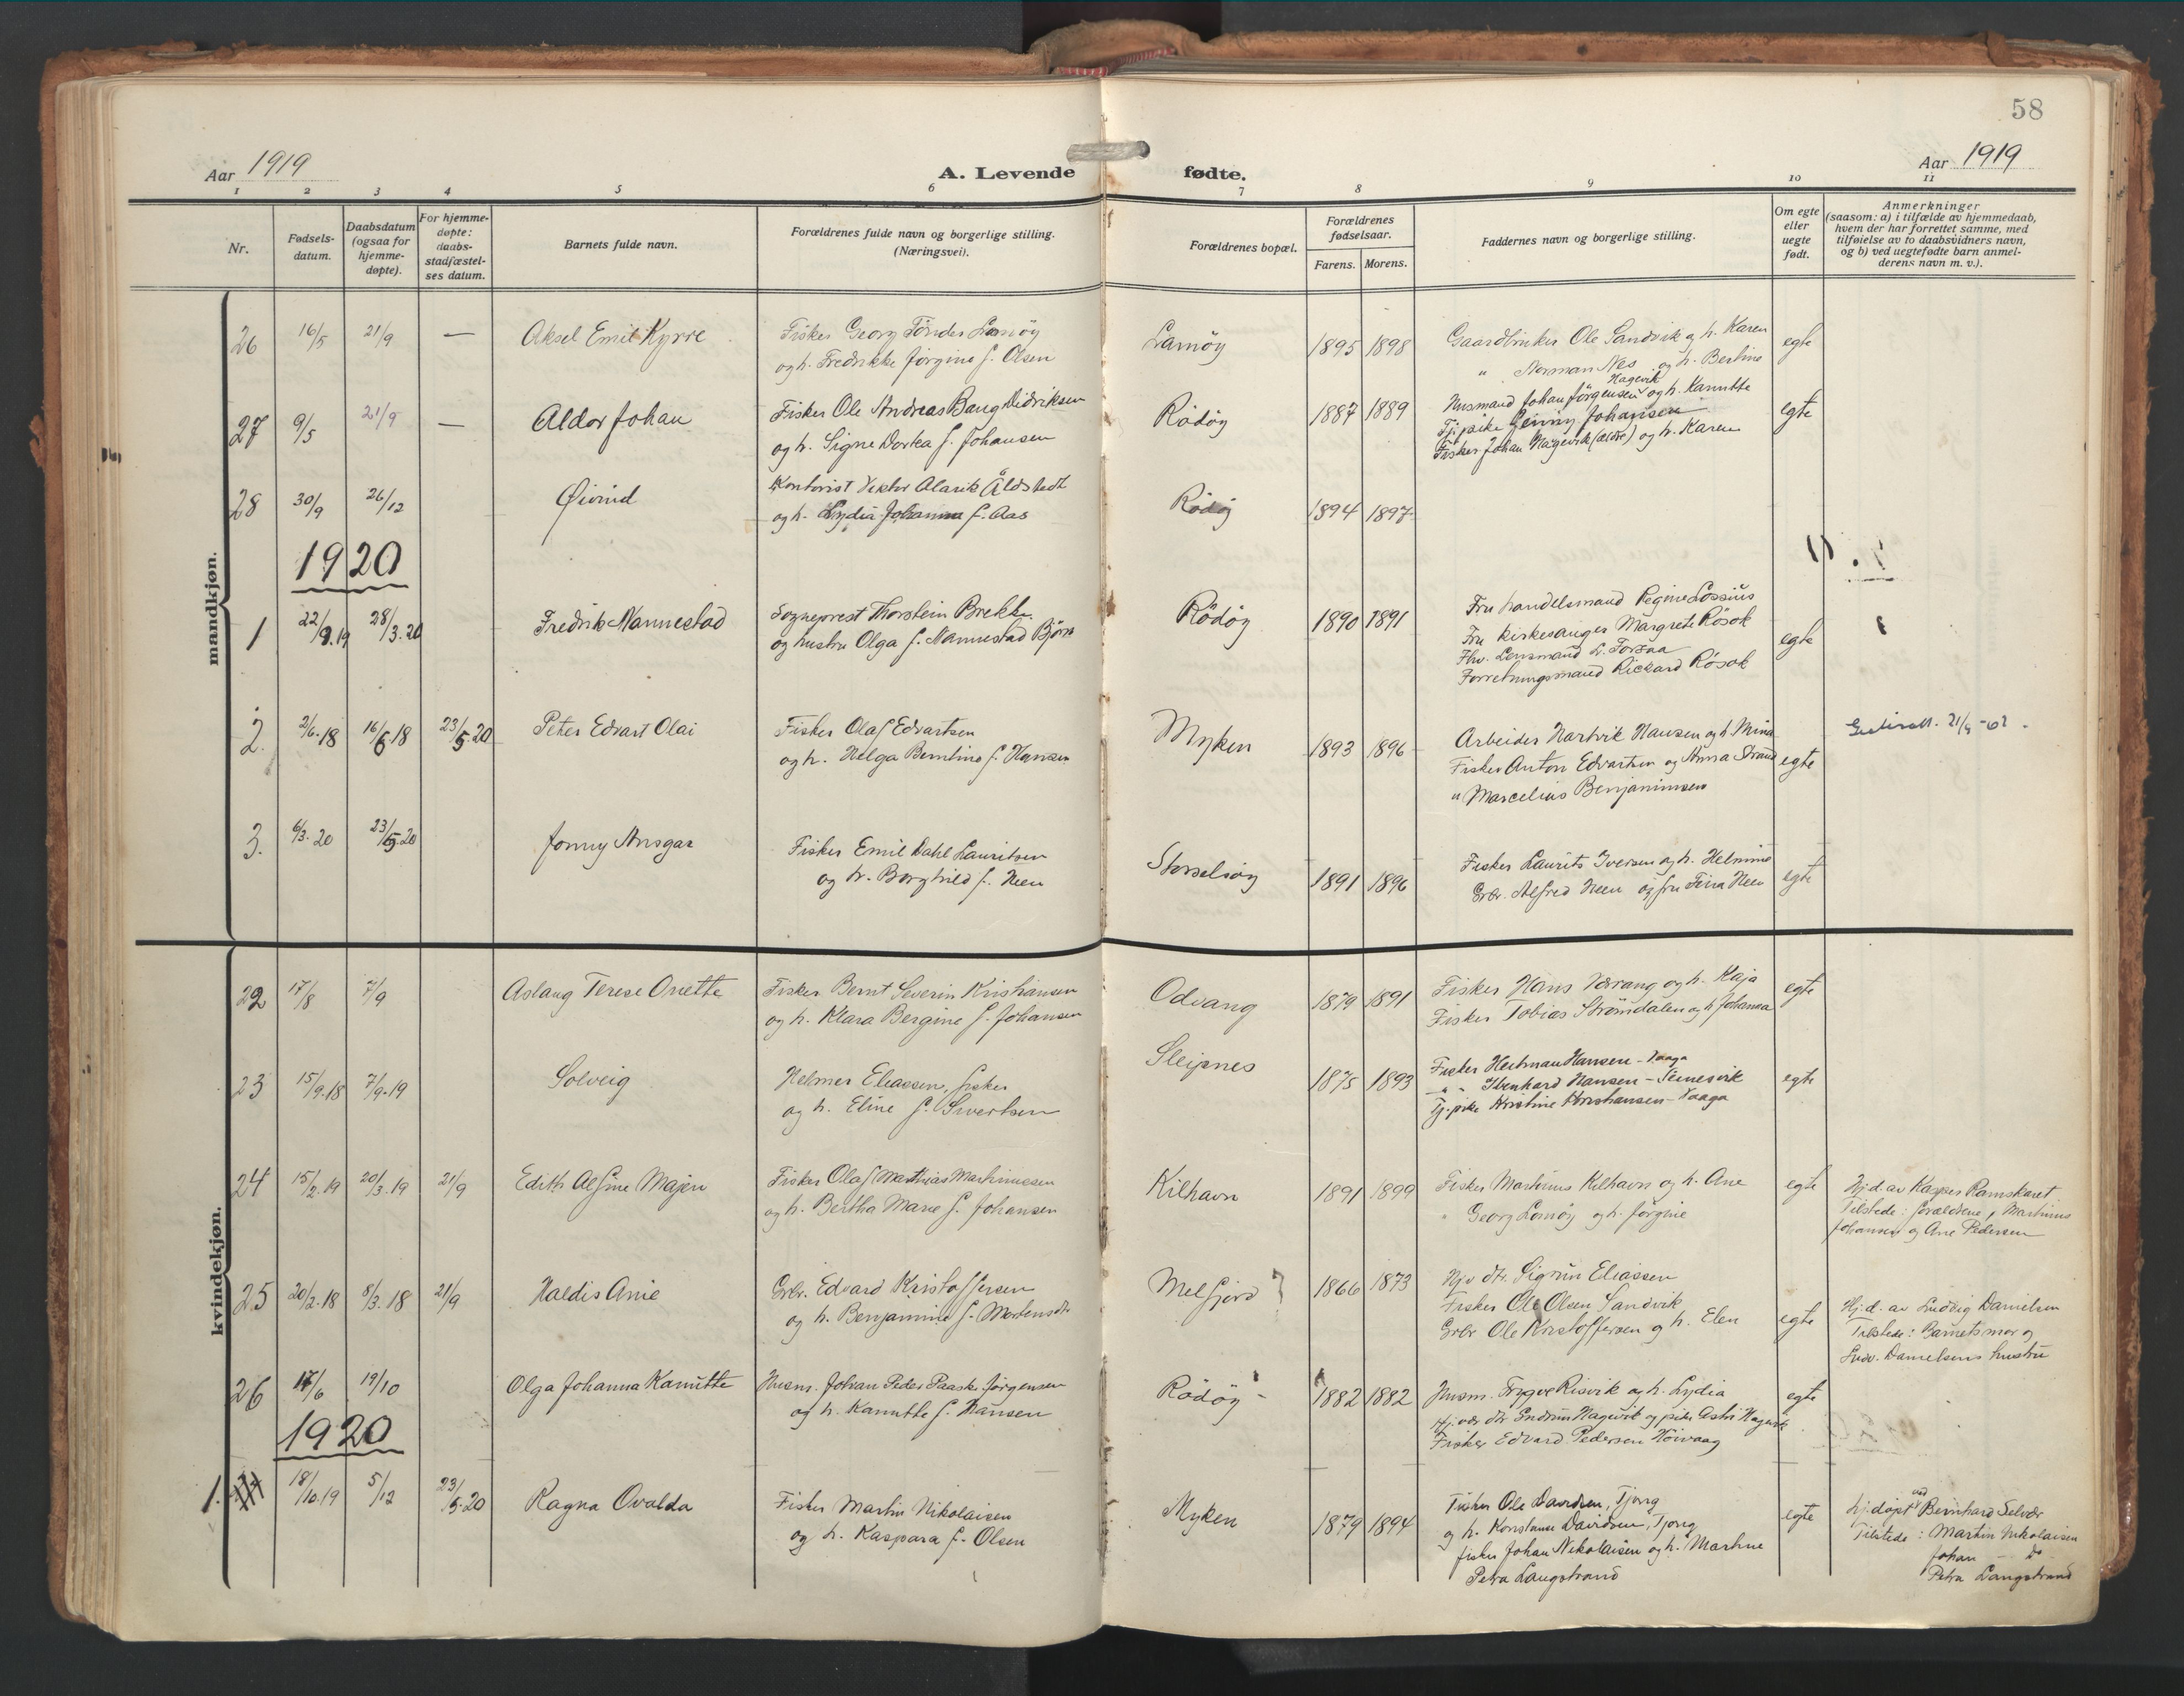 58
Aar 1919
A. Levende fødte.
Aar 1919
1 2 3 4 5 6 7 8 9 10 11
Nr.
Fødsels-
datum.
Daabsdatum
(ogsaa for
hjemme-
døpte).
For hjemme-
døpte:
daabs-
stadfæstel-
ses datum.
Barnets fulde navn.
Forældrenes fulde navn og borgerlige stilling.
(Næringsvei).
Forældrenes bopæl.
Forældrenes
fødselsaar.
Farens. Morens.
Faddernes navn og borgerlige stilling.
Om egte
eller
uegte
født.
Anmerkninger
(saasom: a) i tilfælde av hjemmedaab,
hvem der har forrettet samme, med
tilføielse av to daabsvidners navn,
og b) ved uegtefødte barn anmel-
derens navn m. v.).
mandkjøn.
26 16/5 21/9 — Aksel Emil Kyrre
Fisker Georg Tönder Lamöy
og h. Fredrikke Jørgine f. Olsen
Lamöy 1895 1898
Gaardbruker Ole Sandvik og h. Karen
" Norman Nes og h. Bertine
egte
27 9/5 21/9 — Aldor Johan
Fisker Ole Andreas Bang Didriksen
og h. Signe Dorka f. Johansen
Rödöy 1887 1889
Hagevik
Husmand Johan Jörgensen og h. Kanutte
Tj. pike Jenny Johansen
Fisker Johan Hagevik (ældre) og h. Karen
egte
28 30/9 26/12 Øivind
Kontorist Viktor Alarik Åldstedt
og h. Lydia Johanna f. Aas
Rödöy 1894 1897
1920
1 22/9.19 28/3.20 Fredrik Nannestad
Sogneprest Thorstein Brekke
og hustru Olga f. Nannestad Bjørn
Rödöy 1890 1891
Fru handelsmand Regine Lossius
Fru kirkesanger Margrete Rösok
Fhv. Lensmand L. Forsaa
Forretningsmand Rickard Rösok
egte
2. 2/6.18 16/6.18 23/5.20 Peter Edvart Olai
Fisker Olaf Edvartsen
og h. Helga Berntine f. Hansen
Myken 1893 1896
Arbeider Hartvik Hansen og h. Mina
Fisker Anton Edvartsen og Anna Strand
" Marcelius Benjaminsen
egte
3. 6/3.20 23/5.20 Jonny Ansgar
Fisker Emil Dahl Lauritsen
og h. Borghild f. Neen
Storselsöy 1891 1896
Fisker Laurits Iversen og h. Helmine
Grbr. Alfred Neen og fru Fina Neen
egte
kvindekjøn.
22 17/8 7/9 Aslaug Terese Onette
Fisker Bernt Severin Kristiansen
og h. Klara Bergine f. Johansen
Odvang 1879 1891
Fisker Hans Værang og h. Kaja
Fisker Tobias Strömdalen og h Johanna
egte
23 15/9.18 7/9.19 Solveig
Helmer Eliassen, fisker
og h. Eline f. Sivertsen
Sleipnes 1875 1893
Fisker Heitman Hansen - Vaaga
" " Ibenhard Hansen - Stenesvik
Tj. pike Kristine Kristiansen - Vaaga
egte
24 15/2.19 20/3.19 21/9 Edith Alfine Majen
Fisker Olaf Matthias Martinussen
og h. Bertha Marie f. Johansen
Kilhavn 1891 1899
Fisker Martinus Kilhavn og h. Ane
" Georg Lamöy og h. Jörgine
egte
Hj.d. av Kasper Ramskaret
Tilstede: forældrene, Martinus
Johansen og Ane Pedersen
25 20/2.18 8/3.18 21/9 Haldis Anie
Grbr. Edvard Kristoffersen
og h. Benjamine f. Mortensdtr
Melfjord 1866 1873
Hjv. dtr. Sigrun Eliassen
Fisker Ole Olsen Sandvik
Grbr Ole Kristoffersen og h. Elen
egte
Hj.d. av Ludvig Danielsen
Tilstede: Barnets mor og
Ludv. Danielsens hustru
26 17/6 19/10 Olga Johanna Kanutte
Husm. Johan Peder Paaske Jørgensen
og h. Kanutte f. Hansen
Rödöy - 1882 1882
Husm. Trygve Risvik og h. Lydia
Hj. vær. dtr Gudrun Hagevik og pike Astri Hagevik
Fisker Edvard Pedersen Höivaag
egte
1920
1. 18/10.19 5/12 23/5.20 Ragna Ovalda
Fisker Martin Nikolaisen
og h. Kaspara f. Olsen
Myken 1879 1894
Fisker Ole Davidsen, Tjong
og h. Konstanse Davidsen, Tjong
fisker Johan Nikolaisen og h. Martine
Petra Langstrand
egte
hj.døpt ved Bernhard Selvær
Tilstede: Martin Nikolaisen
Johan — Do
Petra Langstrand